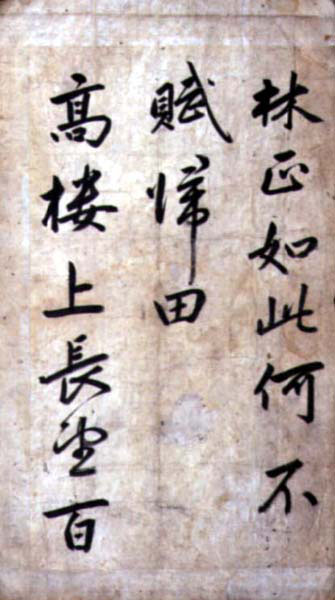 林正如此何不
賦帰田
高楼上長望百